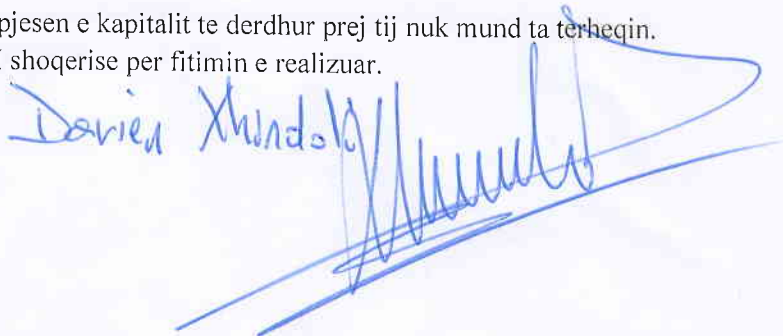 pjesen e kapitalit te derdhur prej tij nuk mund ta terheqin.
shoqerise per fitimin e realizuar.
Darien Xhindoli